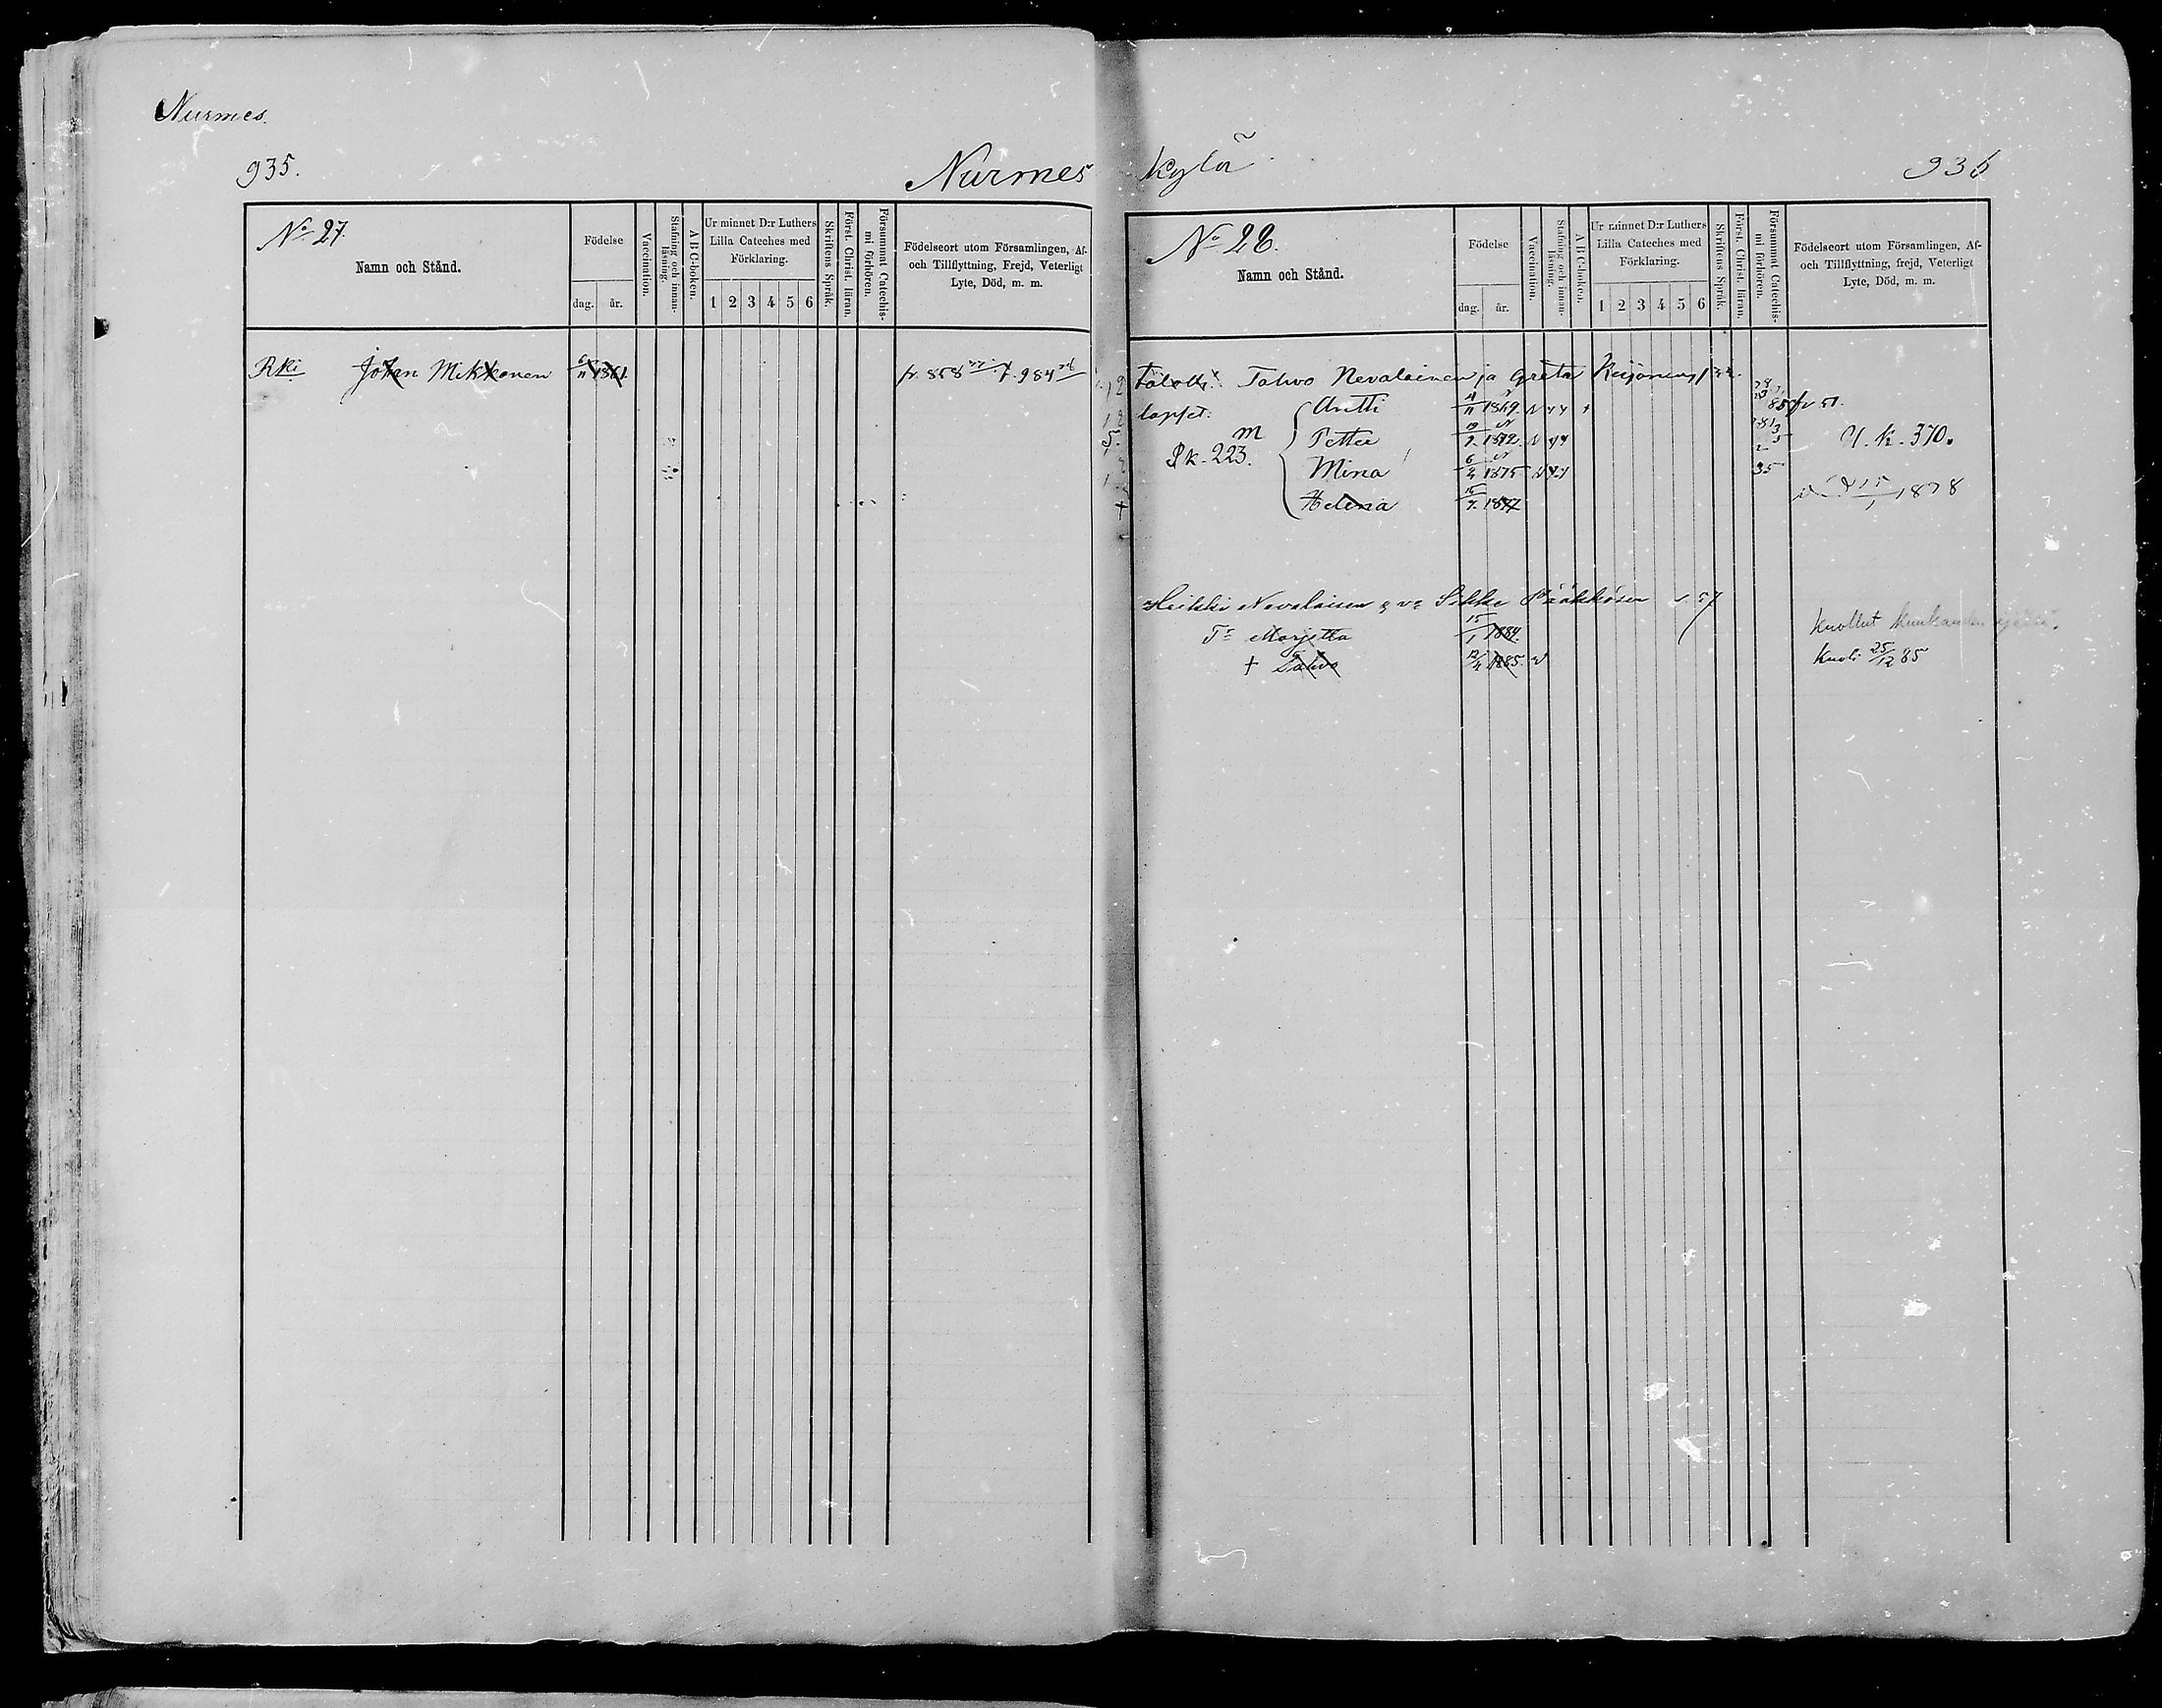 Nurmes.
935.
Nurmes
No 27.
Namn och Stånd.
Födelse
dag. år.
Vaccination.
Stafning och innan-läsning.
A B C-boken.
Ur minnet D:r Luthers
Lilla Cateches med
Förklaring.
1 2 3 4 5 6
Skriftens Språk.
Först. Christ. läran.
Försummat Catechis-mi förhören.
Födelseort utom Församlingen, Af-
och Tillflyttning, Frejd, Veterligt
Lyte, Död, m. m.
Rki Johan Mikkonen 6/11 1861. fr. 858 f. 984
kylä
936
No 28.
Namn och Stånd.
Födelse
dag. år.
Vaccination.
Stafning och innan-läsning.
A B C-boken.
Ur minnet D:r Luthers
Lilla Cateches med
Förklaring.
1 2 3 4 5 6
Skriftens Språk.
Först. Christ. läran.
Försummat Catechis-mi förhören.
Födelseort utom Församlingen, Af-
och Tillflyttning, frejd, Veterligt
Lyte, Död, m. m.
Tahvo Nevalainen ja Greta
lapset: Antti 1869. 85
m Petter 1872. U. K. 370.
Rk. 223.
Mina 1875 35
Helena 1877 1878
Heikki Nevalainen s. 57
Tr Marjetta 15/1 1884. Kuollut
+ Tahvo 12/4 1885. Kuoli 25/12 85